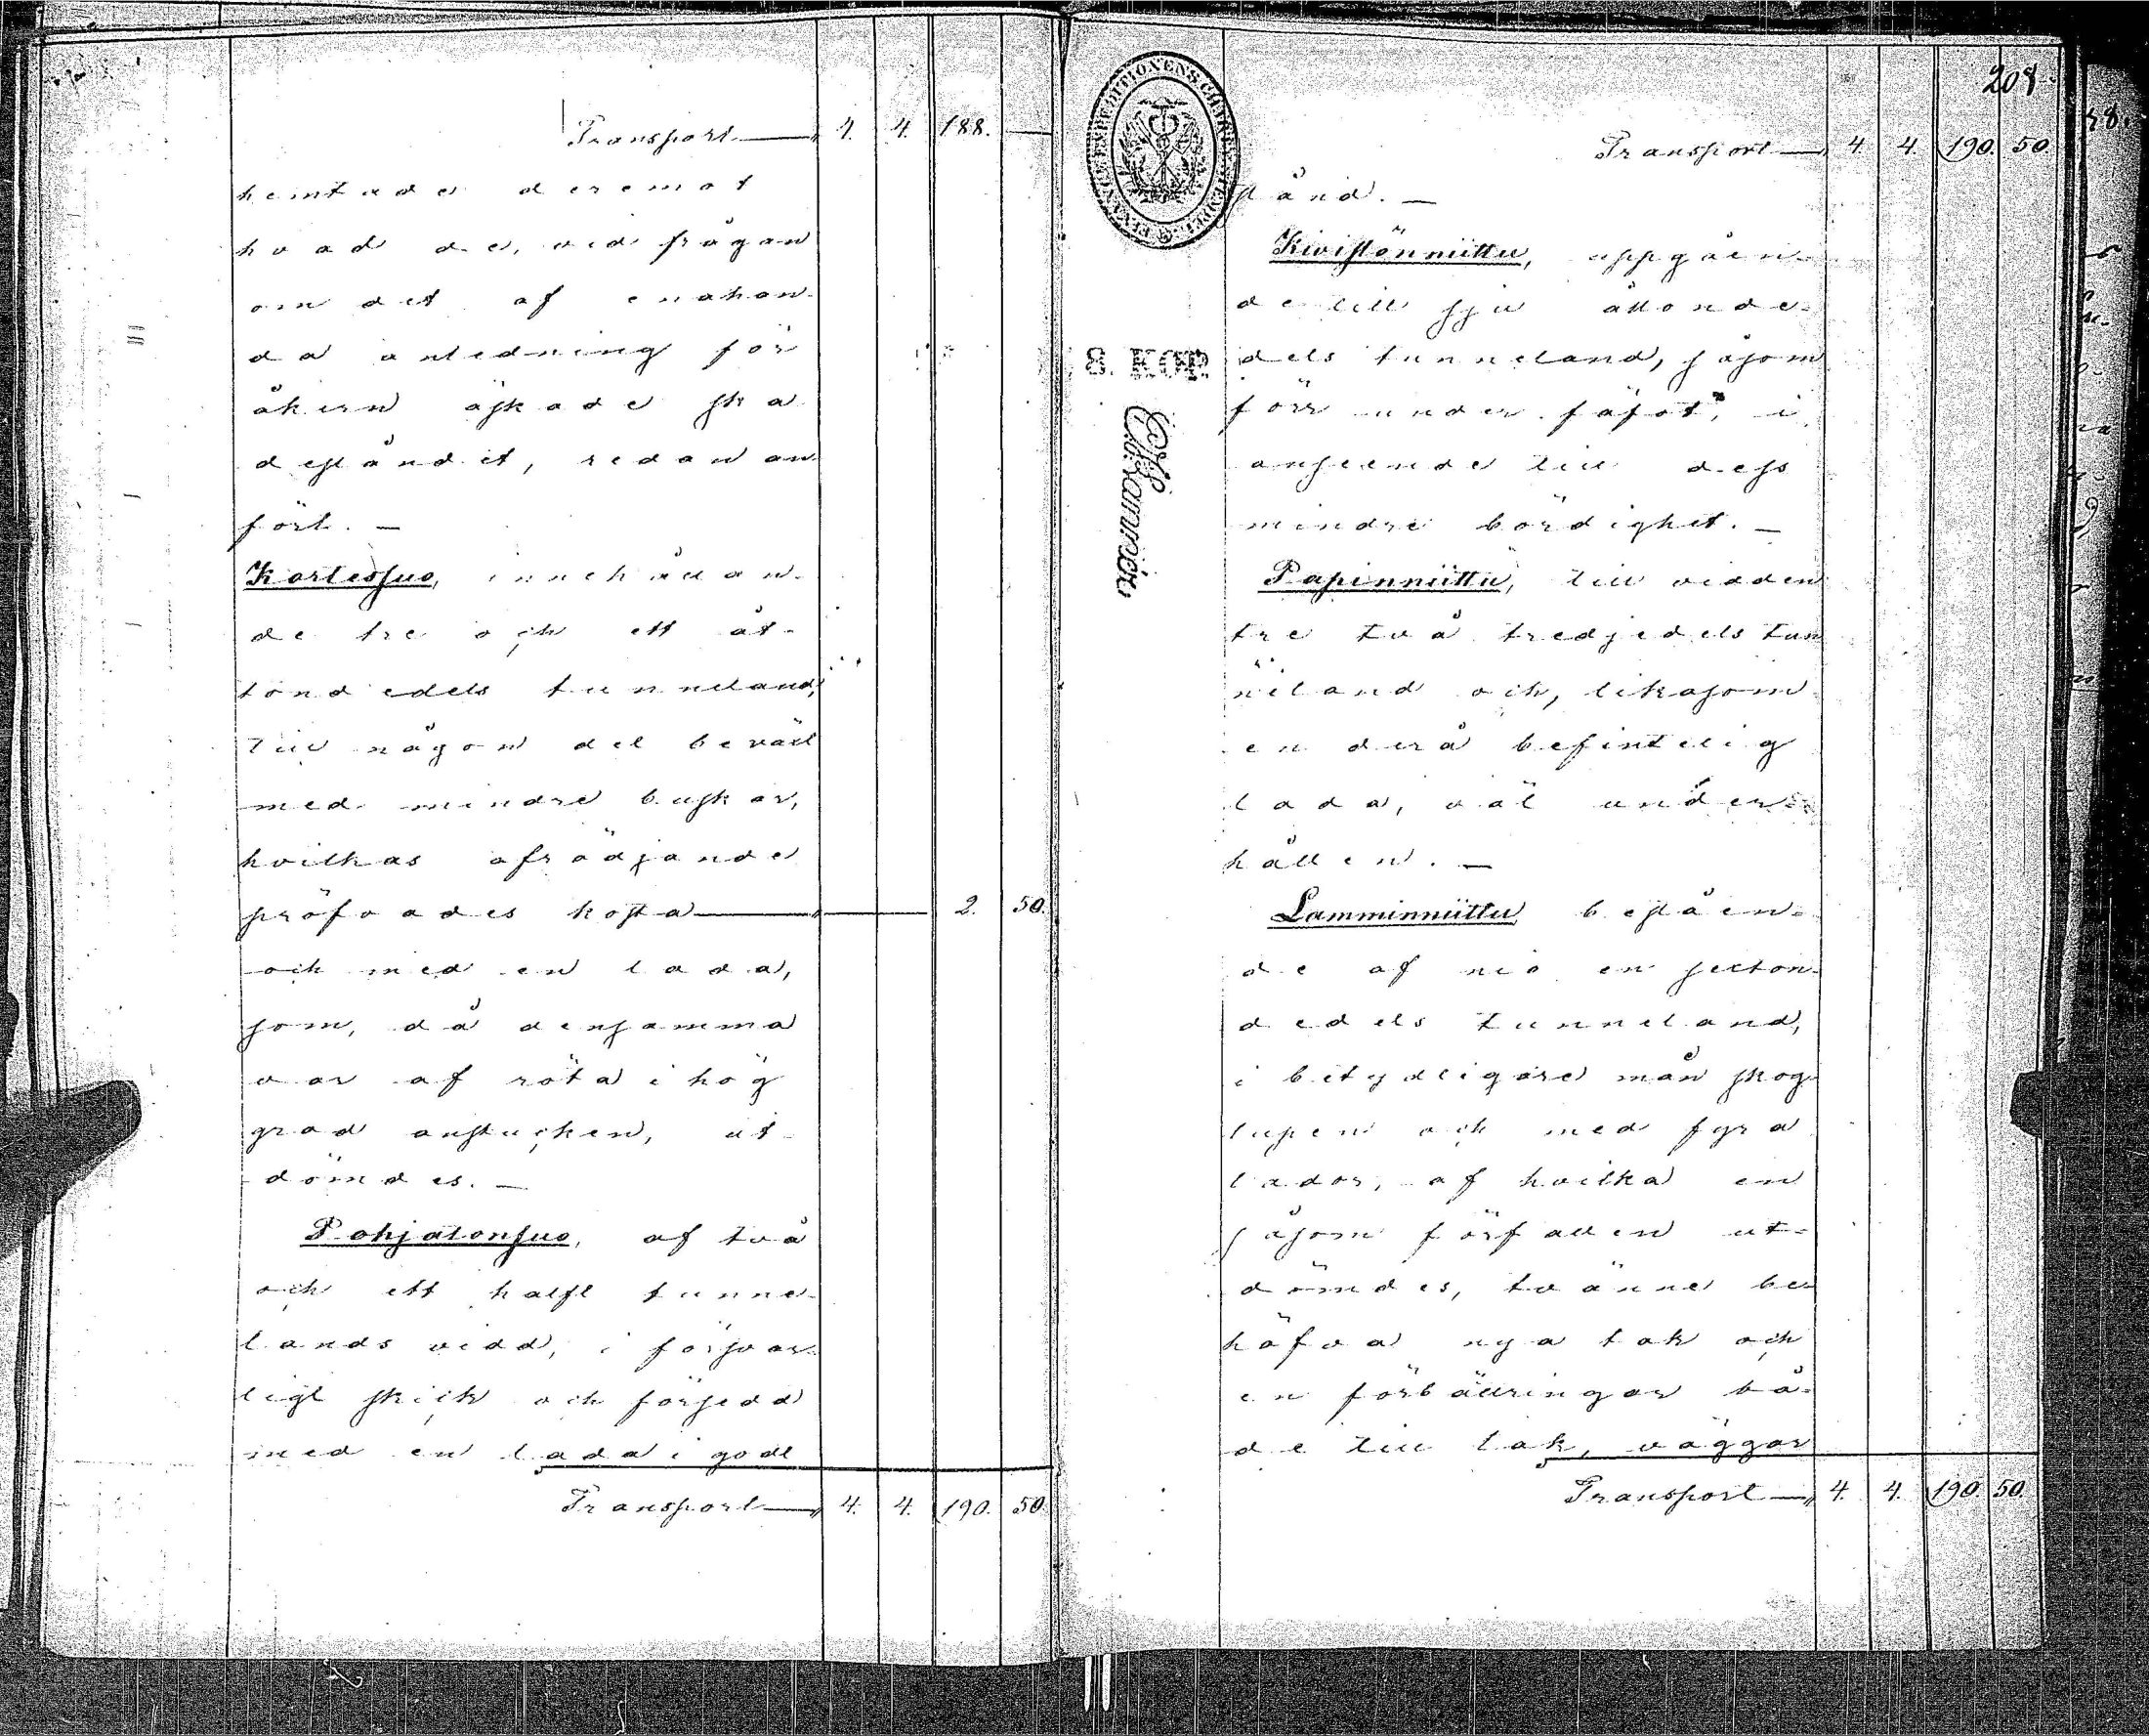 Transport — 4. 4. 188. —
hemtades deremot
hvad de, vid frågan
om det af enahan-
da anledning för
åkern äskade ska
deståndet, redan an
fört. —
Kortessuo, innehållan-
de tre och ett åt-
tondedels tunneland,
till någon del beväxt
med mindre buskar,
hvilkas afrödjande
pröfvades kosta — 2. 50.
och med en lada,
som, då densamma
var af röta i hög
grad anstucken, ut-
dömdes. —
Pohjatonsuo, af två
och ett halft tunne-
lands vidd, i försvar-
ligt skick och försedd
med en lada i godt
Transport — 4. 4. 190. 50.
208.
Transport — 4. 4. 190. 50.
stånd. —
Kivistönniittu, uppgåen-
de till sju åttonde-
dels tunneland, såsom
förr under fäfot, i
anseende till dess
mindre bördighet. —
Papinniittu, till vidden
tre två tredjedels tun
neland och, likasom
en derå befintelig
lada, väl under-
hållen. —
Lamminniittu beståen-
de af nio en setton-
dedels tunneland,
i betydligare mån skog-
lupen och med fyra
lador, af hvilka en
såsom förfallen ut-
dömdes, tvänne be-
höfva nya tak och
en förbättringar bå-
de till tak, väggar
Transport — 4. 4. 190. 50.
8. KOP.